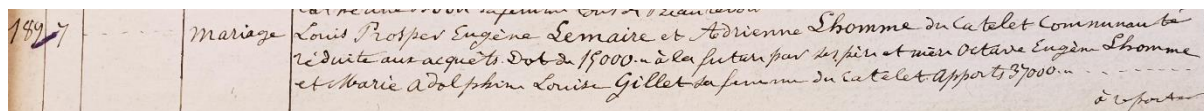 Catherine Bson sa femme tous de Beaurevoir
1897 mariage Louis Prosper Eugène Lemaire et Adrienne Lhomme du Catelet Communauté
réduite aux acquêts. Dot de 15000.. à la future par ses père et mère Octave Eugène Lhomme
et Marie Adolphine Louise Gillet sa femme du Catelet apports 37000..
à reporter